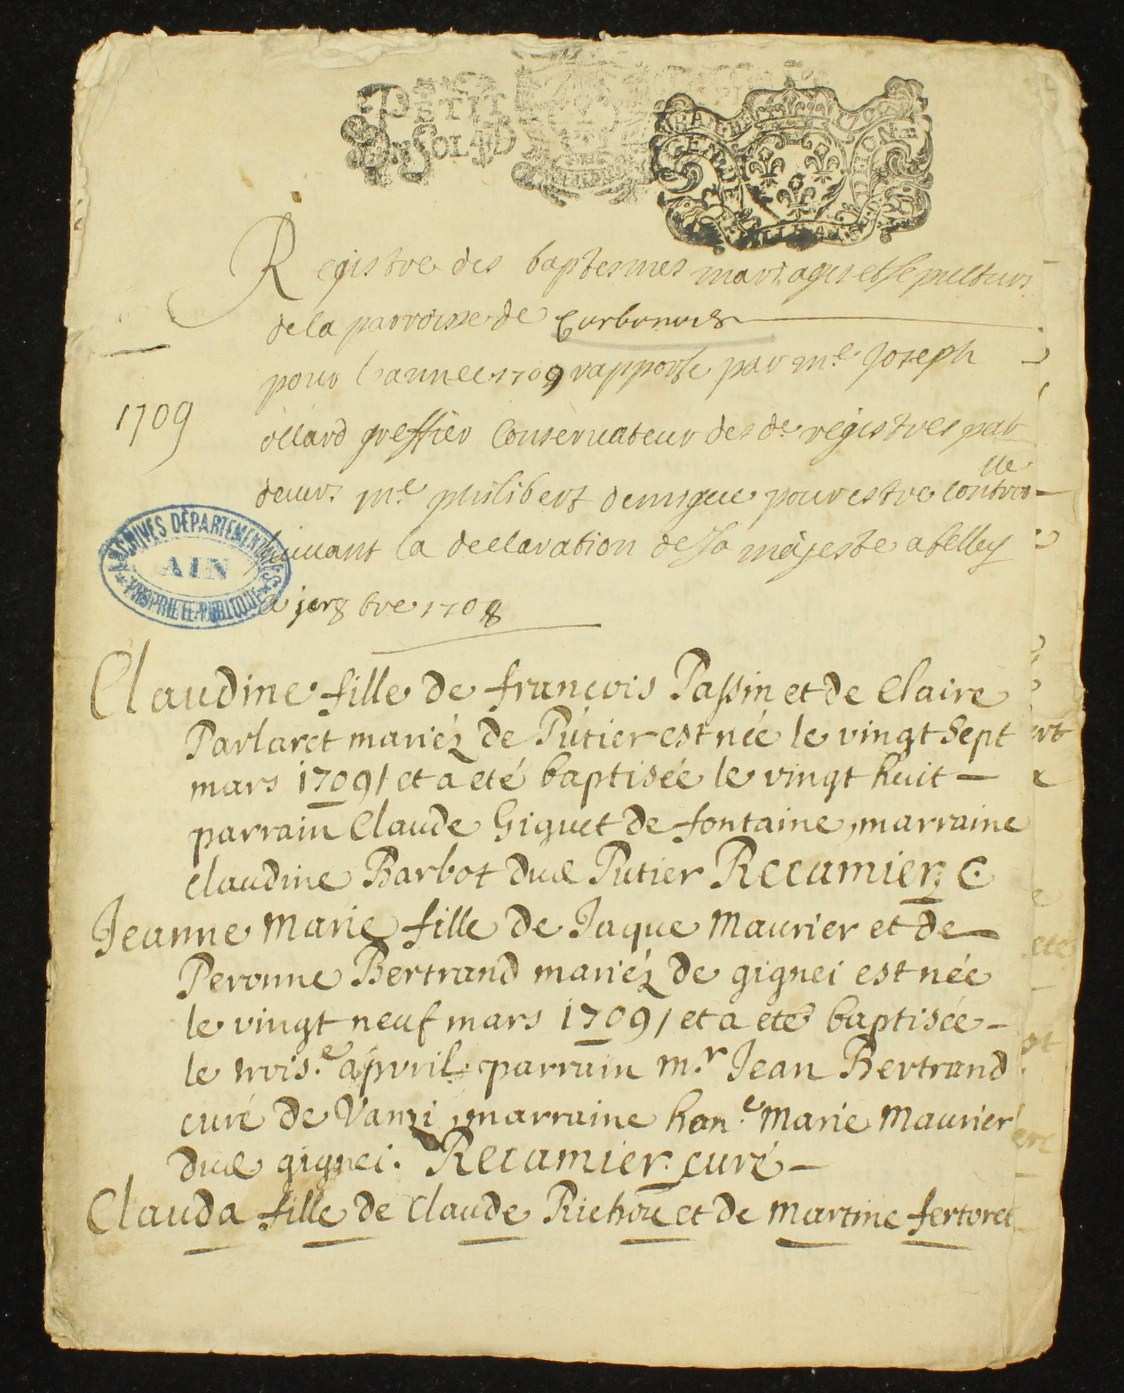 Registre des baptesmes mariages et sepultures
de la parroisse de Corbonod
pour l'annee 1709 rapporte par me Joseph
1709
greffier Conservateur des de registres par
devers me philibert pour estre contro
lle
suivant la declaration de sa majeste a belley
1708
ARCHIVES DÉPARTEMENTALES
AIN
PROPRIETE PUBLIQUE
Claudine fille de françois Passin et de Claire
Parlaret mariéz de Putier est née le vingt sept
mars 1709/ et a eté baptisée le vingt huit –
parrain Claude Giguet de fontaine, marraine
claudine Barbot dud Putier Recamier C.
Jeanne Marie fille de Jaque Maurier et de
Peronne Bertrand mariéz de gignei est née
le vingt neuf mars 1709/ et a eté baptisée –
le trois.e apvril parrain m.r Jean Bertrand
curé de Vanzi, marraine hon.e Marie Maurier
dud gignei. Recamier curé –
Clauda fille de Claude Richou et de Martine fertoret